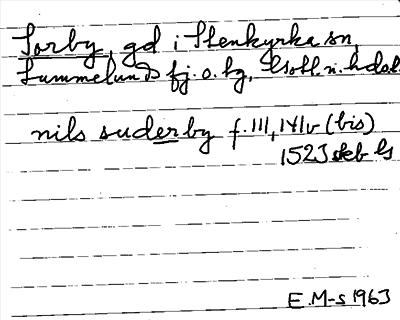 Sorby, gd i Stenkyrka sn,
Lummelunds fj. o. tg, Gotl. n. hd Gotl.
nils suderby f. 111, 141v (bis)
1523 skb ls
E.M-s 1963